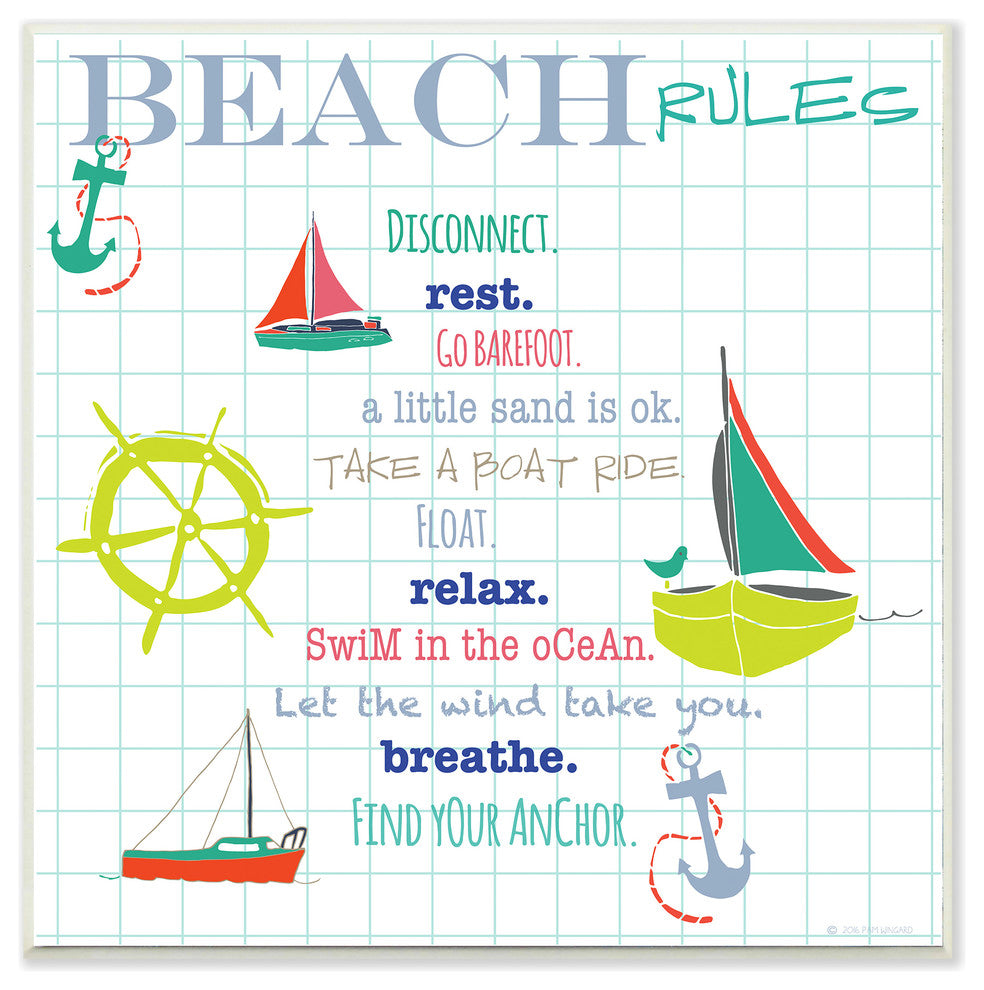 BEACH RULES
DISCONNECT.
rest.
GO BAREFOOT.
a little sand is ok.
TAKE A BOAT RIDE.
FLOAT.
relax.
SwiM in the oCeAn.
Let the wind take you.
breathe.
FIND yOUR ANCHOR.
© 2016, PAM WINGARD